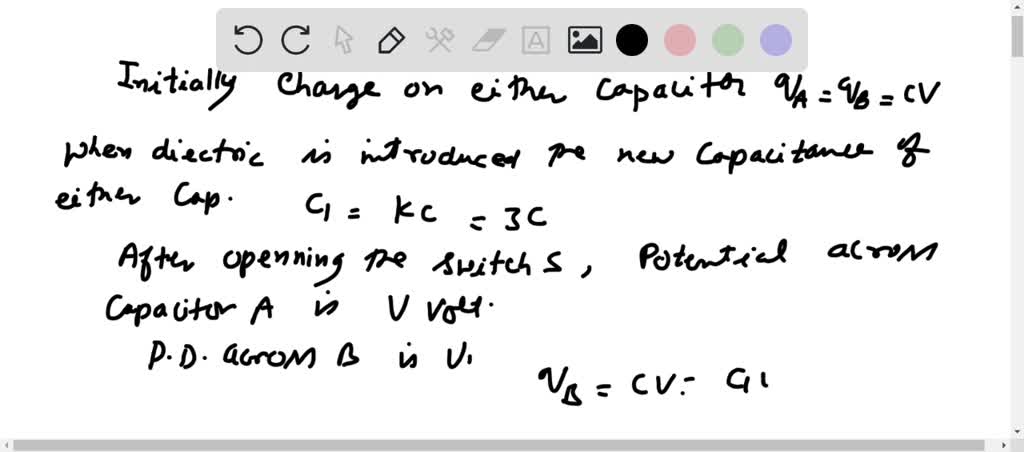 Initially charge on either capacitor qA = qB = CV
when diectric is introduced the new capacitance of
either Cap. C1 = KC = 3C
After openning the switch S, Potential across
Capacitor A is V volt.
P.D. across B is V1
qB = CV = C1